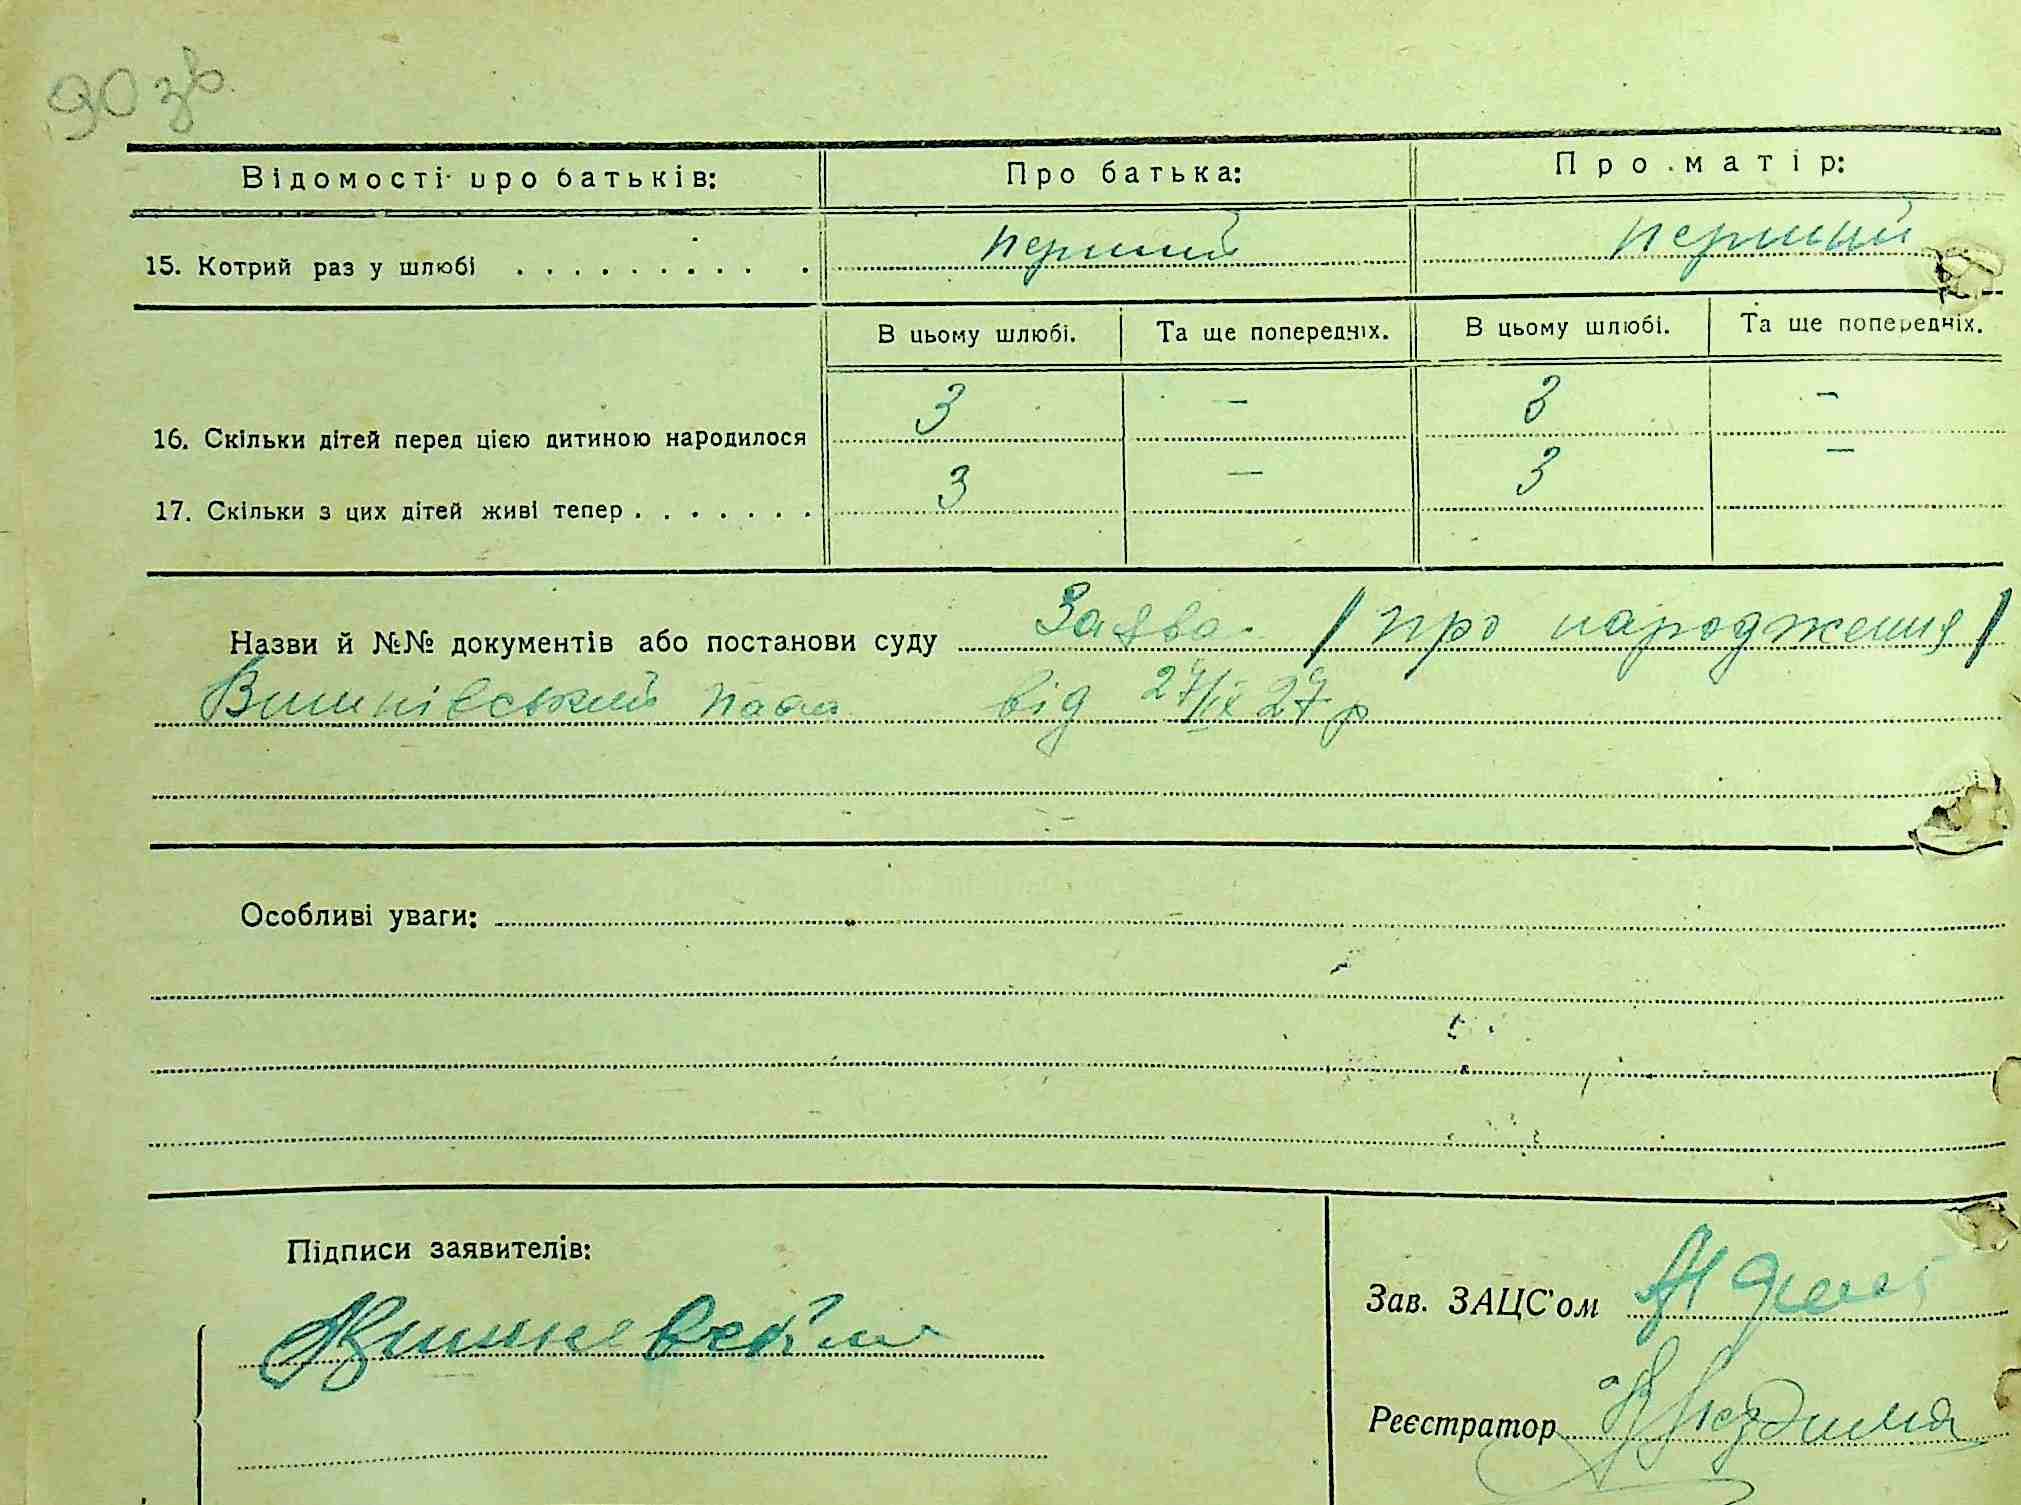 90 зв.
Відомості про батьків: Про батька: Про матір:
15. Котрий раз у шлюбі . . . . . . . . . . перший перший
В цьому шлюбі. Та ще попередніх. В цьому шлюбі. Та ще попередніх.
16. Скільки дітей перед цією дитиною народилося 3 – 3 –
17. Скільки з цих дітей живі тепер . . . . . . . 3 – 3 –
Назви й №№ документів або постанови суду Заява / про народження /
Вишнівський від 27/IX 27 р
Особливі уваги:
Підписи заявителів:
Зав. ЗАЦС'ом
Реєстратор